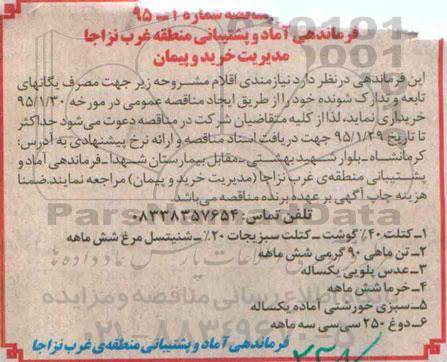 مناقصه شماره ۱ – ۹۵
فرماندهی آماد و پشتیبانی منطقه غرب نزاجا
مدیریت خرید و پیمان
این فرماندهی در نظر دارد نیازمندی اقلام مشروحه زیر جهت مصرف یگانهای
تابعه و تدارک شونده خود را از طریق ایجاد مناقصه عمومی در مورخه ۹۵/۱/۳۰
خریداری نماید، لذا از کلیه متقاضیان شرکت در مناقصه دعوت می‌شود حداکثر
تا تاریخ ۹۵/۱/۲۹ جهت دریافت اسناد مناقصه و ارائه نرخ پیشنهادی به آدرس:
کرمانشاه – بلوار شهید بهشتی – مقابل بیمارستان شهدا – فرماندهی آماد و
پشتیبانی منطقه‌ی غرب نزاجا (مدیریت خرید و پیمان) مراجعه نمایند. ضمنا
هزینه چاپ آگهی بر عهده برنده مناقصه می‌باشد.
تلفن تماس: ۰۸۳۳۸۳۵۷۶۵۴
۱– کتلت ۴۰٪ گوشت – کتلت سبزیجات ۲۰٪ – شنیتسل مرغ شش ماهه
۲– تن ماهی ۹۰ گرمی شش ماهه
۳– عدس پلویی یکساله
۴– خرما شش ماهه
۵– سبزی خورشتی آماده یکساله
۶– دوغ ۲۵۰ سی سی سه ماهه
فرماندهی آماد و پشتیبانی منطقه‌ی غرب نزاجا